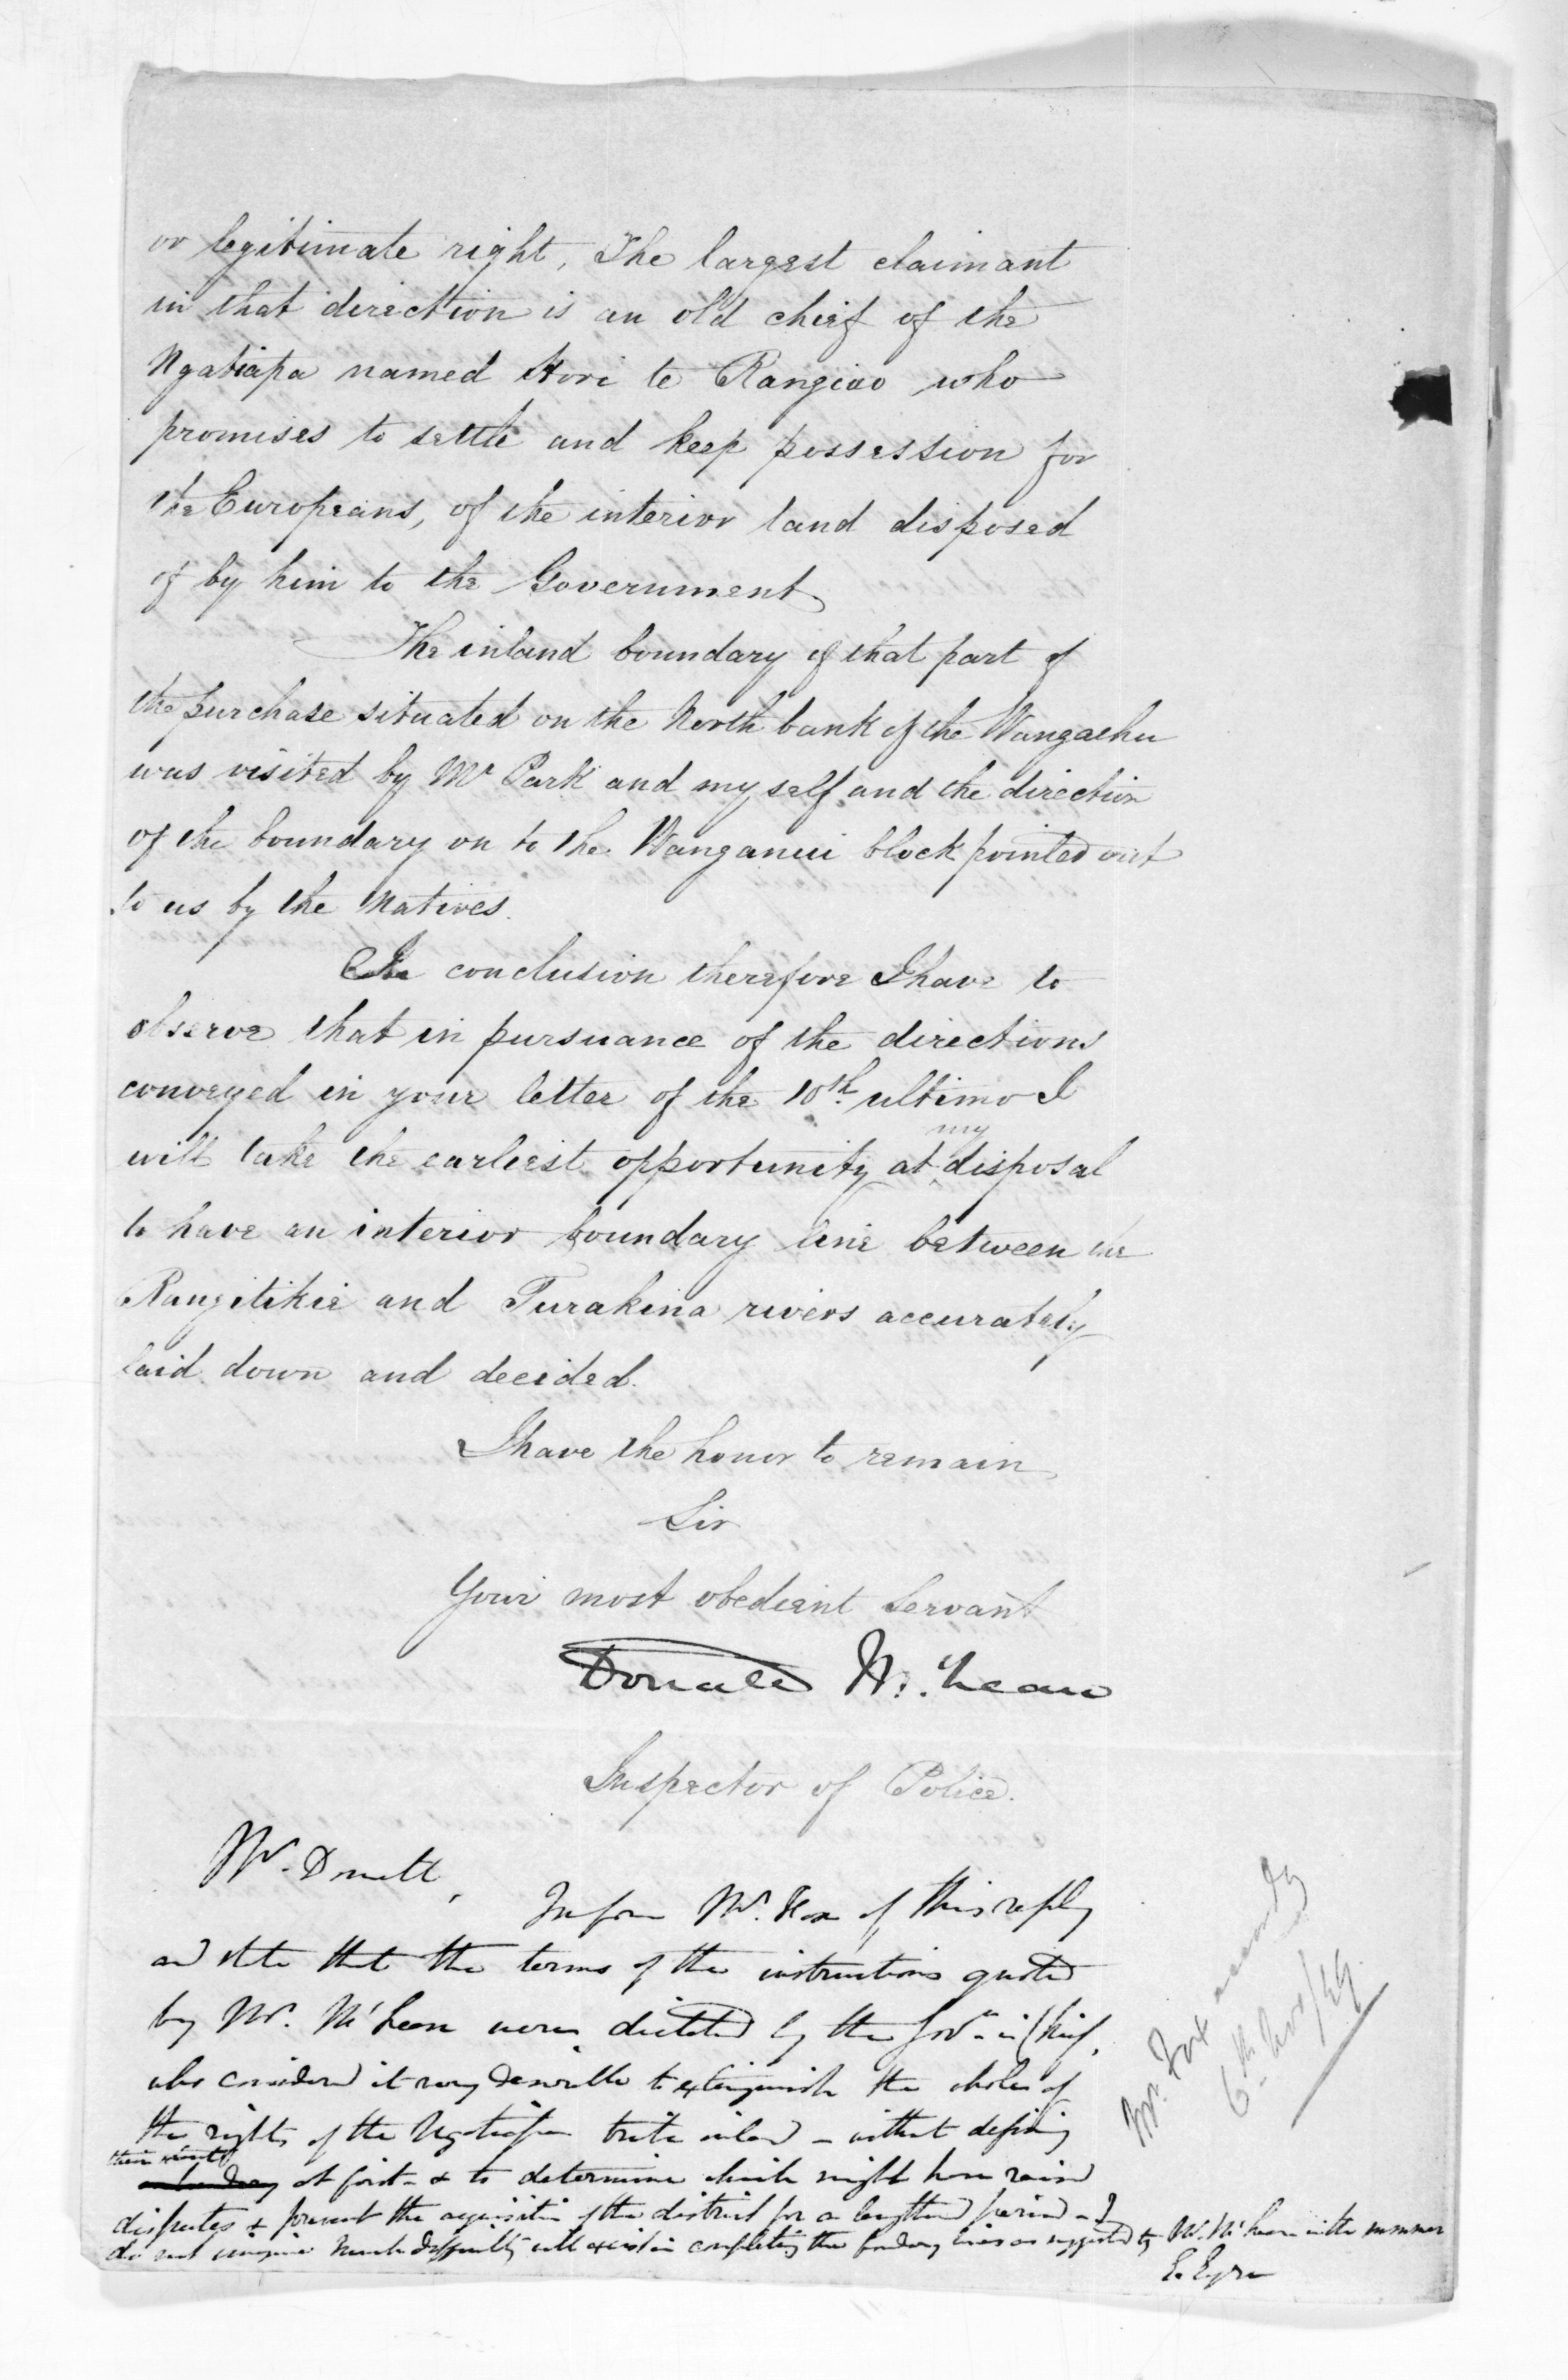 or legitimate right, The largest claimant
in that direction is an old chief of the
Ngatiapa named Hori te Rangiao who
promises to settle and keep possession for
the Europeans, of the interior land disposed
of by him to the Government
The inland boundary of that part of
the purchase situated on the North bank of the Wangaehu
was visited by Mr Park and my self and the direction
of the boundary on to the Wanganui block pointed out
to us by the Natives.
In conclusion therefore I have to
observe that in pursuance of the directions
conveyed in your letter of the 10th ultimo I
will take the earliest opportunity at my disposal
to have an interior boundary line between the
Rangitikie and Turakina rivers accurately
laid down and decided.
I have the honor to remain
Sir
Your most obedient Servant
Donald McLean
Inspector of Police.
Mr.
Inform Mr. Fox of this reply
and state that the terms of the instructions quoted
by Mr. McLean were dictated by the Govr in Chief,
who considered it very desirable to extinguish the whole of
the rights of the Ngatiapa tribe inland - without defining
their extent at first - & to determine which might have raised
disputes & prevent the acquisition of the district for a lengthened period - I
do not imagine much difficulty will exist in completing the boundary lines as suggested by Mr. McLean in the summer
E. Eyre
Mr. Fox accordg
6th Nov/49.